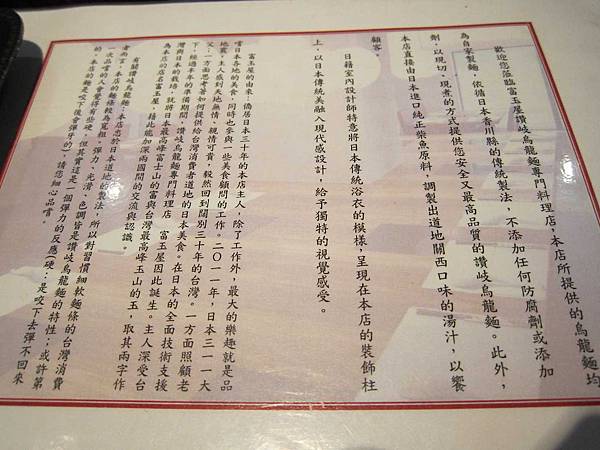 歡迎您蒞臨富玉屋讚岐烏龍麵專門料理店，本店所提供的烏龍麵均
為自家製麵，依循日本香川縣的傳統製法，不添加任何防腐劑或添加
劑，以現切、現煮的方式提供您安全又最高品質的讚岐烏龍麵。此外，
本店直接由日本進口純正柴魚原料，調製出道地關西口味的湯汁，以饗
顧客。
日籍室內設計師特意將日本傳統浴衣的模樣，呈現在本店的裝飾柱
上，以日本傳統美融入現代感設計，給予獨特的視覺感受。
富玉屋的由來：僑居日本三十年的本店主人，除了工作外，最大的樂趣就是品
嚐日本各地的美食，同時也參與一些美食顧問的工作。二○一一年，日本三一一大
地震，主人感到天地無情、親情可貴，毅然回到闊別三十年的台灣。一方面照顧老
父，一方面思考著如何提供給台灣消費者道地的日本美食。在日本的全面技術支援
下，經過半年的準備期間，讚岐烏龍麵專門料理店 富玉屋因此誕生。主人深受台
灣與日本的栽培，就將日本最高峰富士山的富與台灣最高峰玉山的玉，取其兩字作
為本店的店名富玉屋，藉此能加深兩國間的交流與認識。
有關讚岐烏龍麵：本店忠於日本道地的製法，所以對習慣細軟麵條的台灣消費
者而言，本店的麵條較為寬粗。彈力、光滑、色調皆是讚岐烏龍麵的特性；或許第
一次品嚐的人會覺得有些硬，但其實這是一個彈力的反應(硬：是咬下去彈不回來
的。本店的麵是咬下後會彈牙的)，請您細心品嚐。